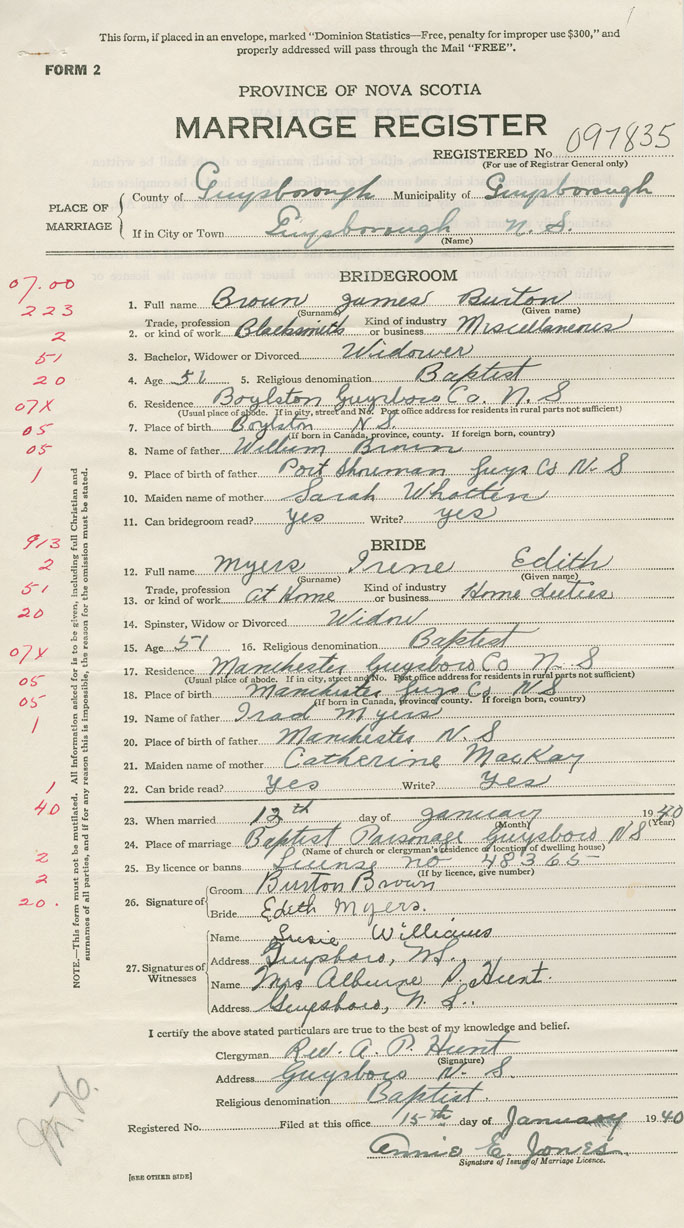 This form, if placed in an envelope, marked "Dominion Statistics—Free, penalty for improper use $300," and
properly addressed will pass through the Mail "FREE".
FORM 2
PROVINCE OF NOVA SCOTIA
MARRIAGE REGISTER
REGISTERED No. 097835
(For use of Registrar General only)
PLACE OF MARRIAGE
County of Guysborough Municipality of Guysborough
If in City or Town Guysborough N. S.
(Name)
BRIDEGROOM
07.00
1. Full name Brown James Burton
(Surname) (Given name)
223
2. Trade, profession or kind of work Blacksmith Kind of industry or business Miscellaneous
2
3. Bachelor, Widower or Divorced Widower
51
4. Age 51 5. Religious denomination Baptist
20
6. Residence Boylston Guysboro Co. N. S
(Usual place of abode. If in city, street and No. Post office address for residents in rural parts not sufficient)
07X
7. Place of birth Boylston N S.
(If born in Canada, province, county. If foreign born, country)
05
8. Name of father William Brown
05
9. Place of birth of father Port Shoreman Guys Co N. S
1
10. Maiden name of mother Sarah Whotten
11. Can bridegroom read? yes Write? yes
BRIDE
913
12. Full name Myers Irene Edith
(Surname) (Given name)
2
13. Trade, profession or kind of work At Home Kind of industry or business Home duties
51
14. Spinster, Widow or Divorced Widow
20
15. Age 51 16. Religious denomination Baptist
07X
17. Residence Manchester Guysboro Co N. S
(Usual place of abode. If in city, street and No. Post office address for residents in rural parts not sufficient)
05
18. Place of birth Manchester Guys Co N S
(If born in Canada, province, county. If foreign born, country)
05
19. Name of father Irad Myers
1
20. Place of birth of father Manchester N. S
21. Maiden name of mother Catherine MacKay
22. Can bride read? Yes Write? Yes
1
40
23. When married 12th day of January 1940
(Month) (Year)
24. Place of marriage Baptist Parsonage Guysboro N S
(Name of church or clergyman's residence or location of dwelling house)
2
25. By licence or banns License no 48365
(If by licence, give number)
2
20.
26. Signature of
Groom Burton Brown
Bride Edith Myers.
27. Signatures of Witnesses
Name Susie Williams
Address Guysboro, N.S.,
Name Mrs Alburne P. Hunt.
Address Guysboro, N. S.
I certify the above stated particulars are true to the best of my knowledge and belief.
Clergyman Rev. A. P. Hunt
(Signature)
Address Guysboro N. S.
Religious denomination Baptist.
Registered No. Filed at this office 15th day of January 1940
Annie E. Jones
Signature of Issuer of Marriage Licence.
[SEE OTHER SIDE]
NOTE.—This form must not be mutilated. All information asked for is to be given, including full Christian and
surnames of all parties, and if for any reason this is impossible, the reason for the omission must be stated.